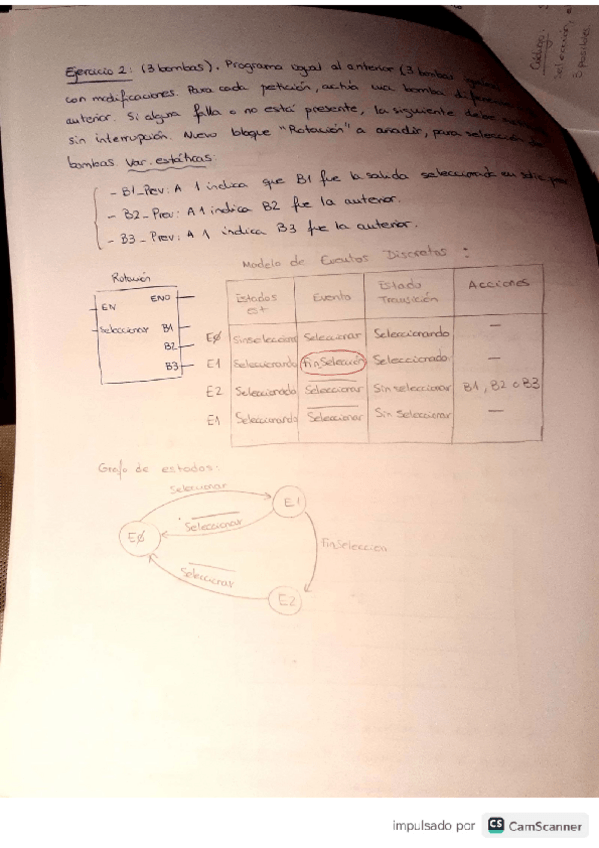 Código:
Selección, 
3 posibles
Ejercicio 2: (3 bombas). Programa igual al anterior (3 bombas
con modificaciones. Para cada petición, actúa una bomba diferente
anterior. Si alguna falla o no está presente, la siguiente debe
sin interrupción. Nuevo bloque "Rotación" a añadir, para selección de
bombas. Var. estáticas:
- B1_Prev: A 1 indica que B1 fue la salida seleccionada en
- B2_Prev: A 1 indica B2 fue la anterior.
- B3_Prev: A 1 indica B3 fue la anterior.
Modelo de Eventos Discretos:
Rotación
EN ENO
Seleccionar B1
B2
B3
Estados est Evento Estado Transición Acciones
EØ Sinseleccionar Seleccionar Seleccionando —
E1 Seleccionando FinSelección Seleccionado —
E2 Seleccionado Seleccionar Sin seleccionar B1, B2 o B3
E1 Seleccionando Seleccionar Sin Seleccionar —
Grafo de estados:
Seleccionar
E1
Seleccionar
EØ
FinSeleccion
Seleccionar
E2
impulsado por CS CamScanner